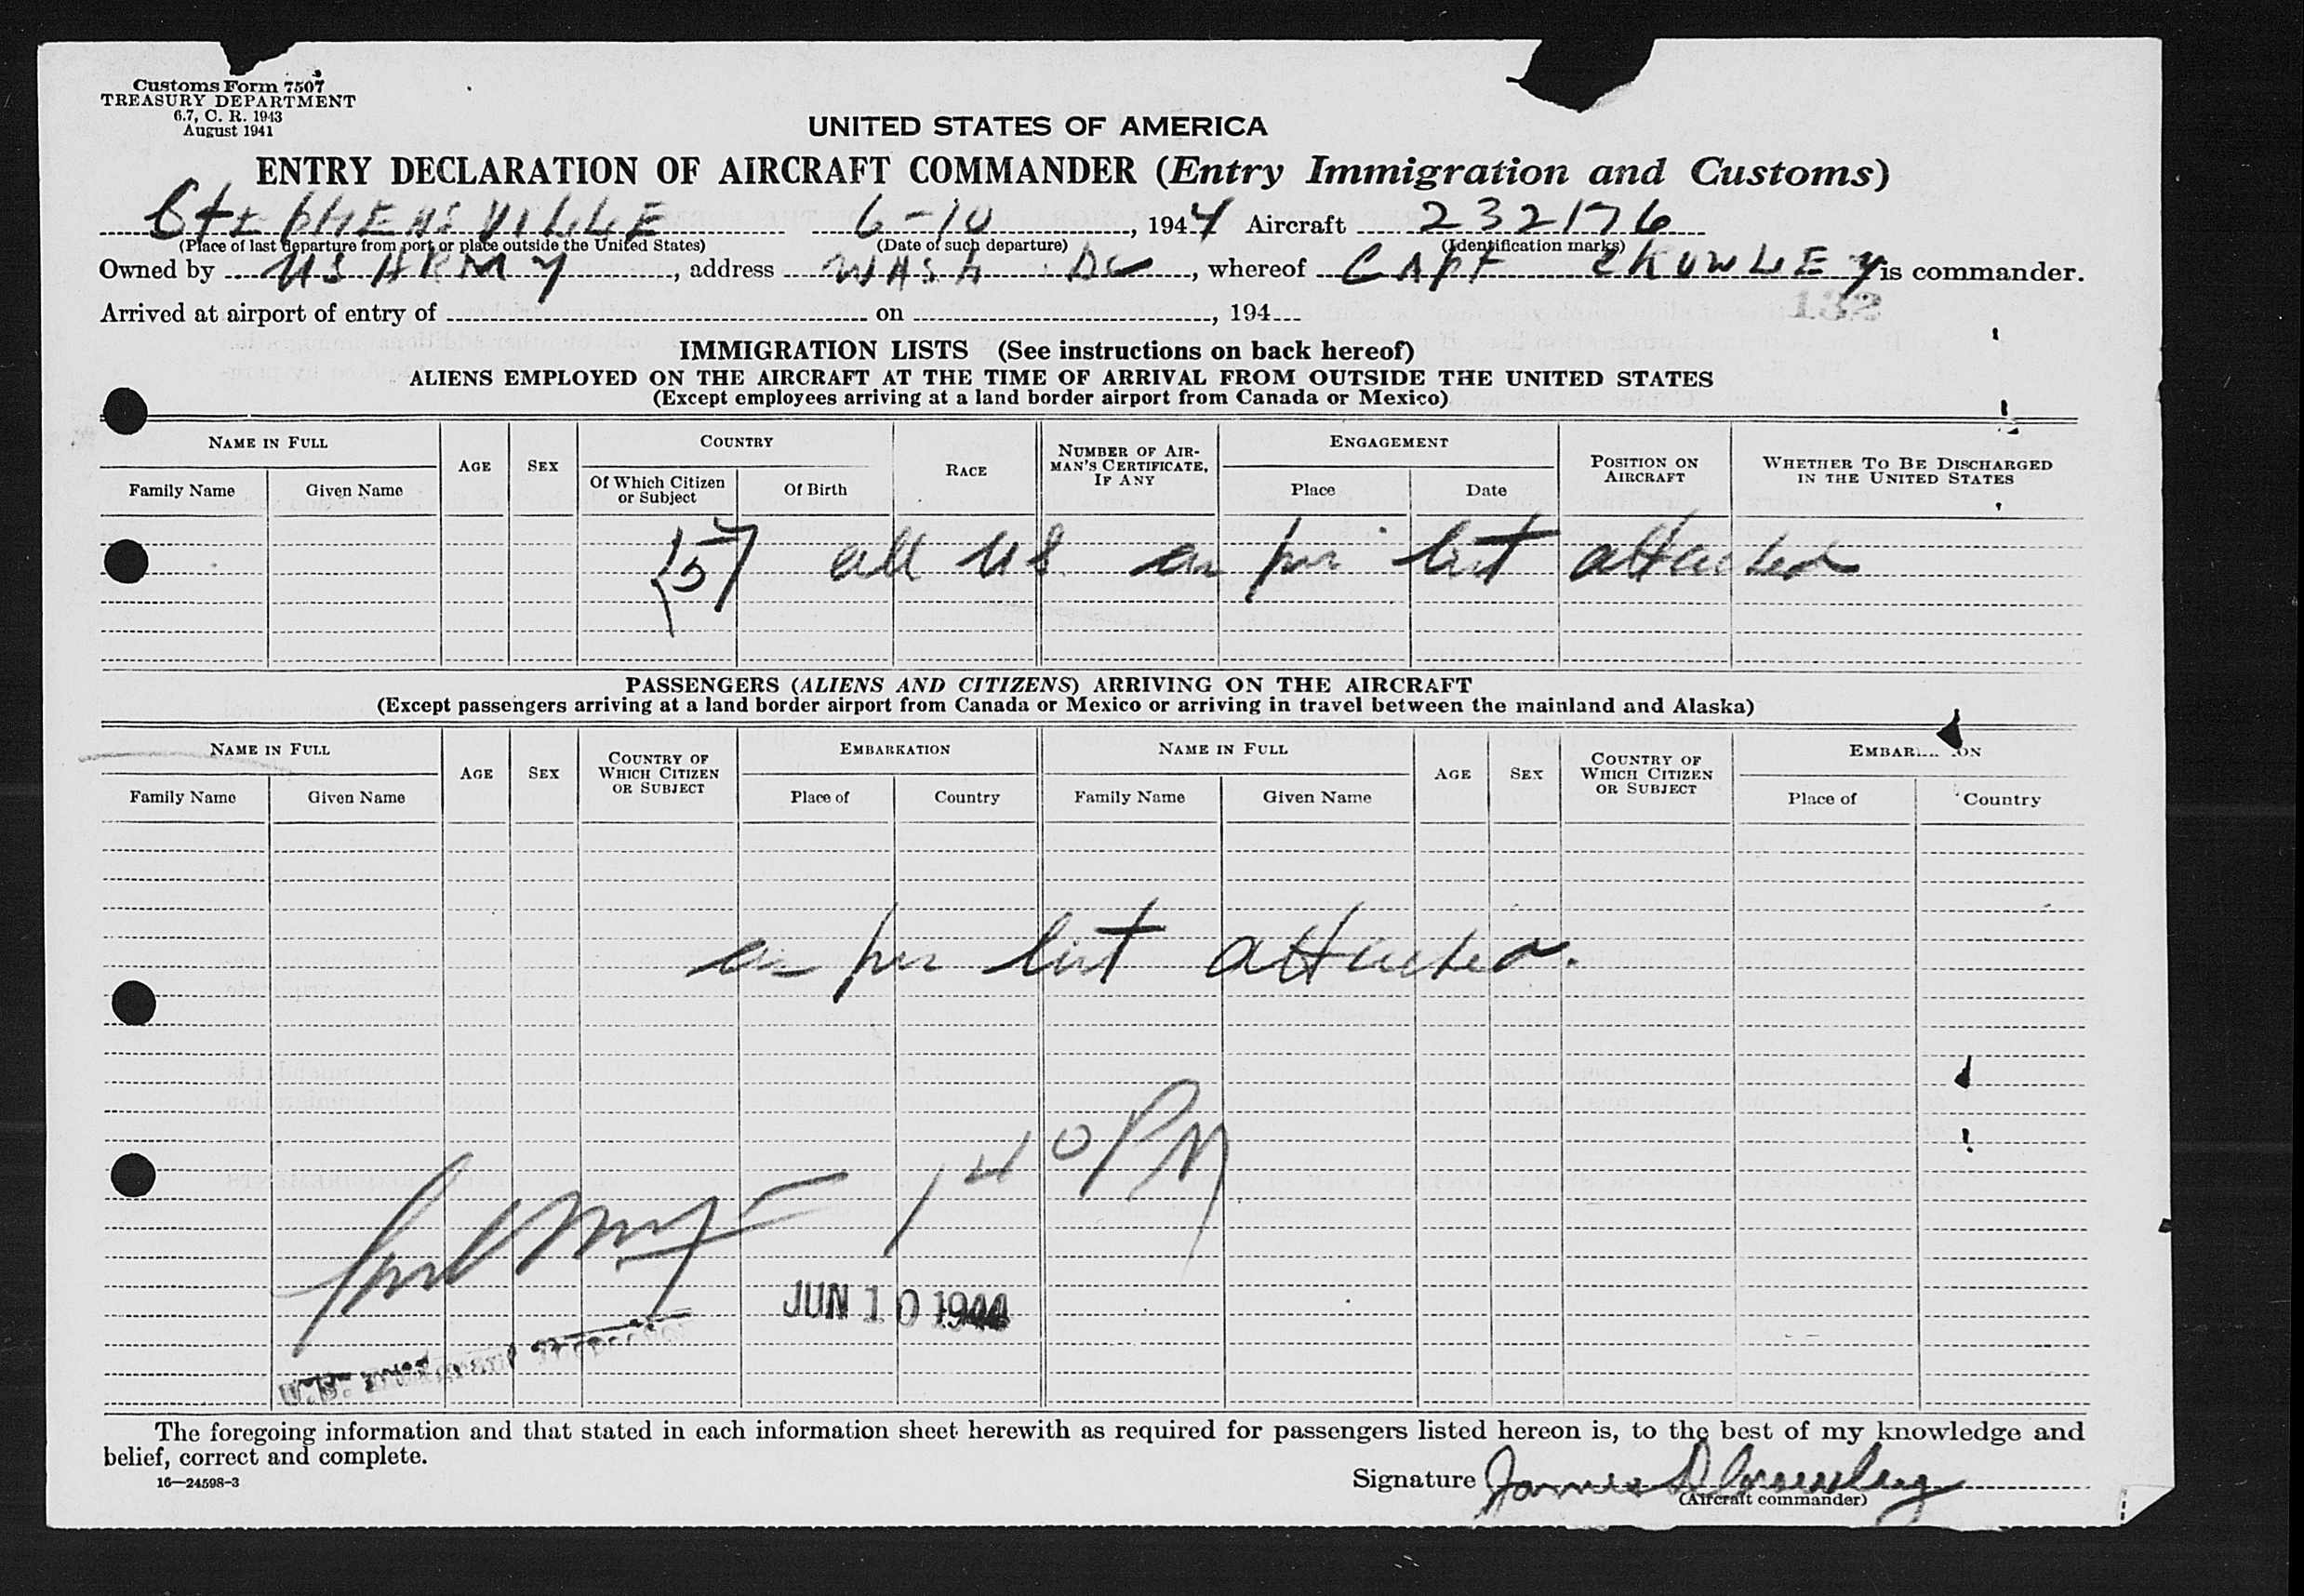 Customs Form 7507
TREASURY DEPARTMENT
6.7, C. R. 1943
August 1941
UNITED STATES OF AMERICA
ENTRY DECLARATION OF AIRCRAFT COMMANDER (Entry Immigration and Customs)
StEpHENSVILLE 6-10, 1944 Aircraft 232176
(Place of last departure from port or place outside the United States) (Date of such departure) (Identification marks)
Owned by US ARMY, address WASH DC, whereof CAPT CROWLEY is commander.
132
Arrived at airport of entry of on , 194
IMMIGRATION LISTS (See instructions on back hereof)
ALIENS EMPLOYED ON THE AIRCRAFT AT THE TIME OF ARRIVAL FROM OUTSIDE THE UNITED STATES
(Except employees arriving at a land border airport from Canada or Mexico)
NAME IN FULL AGE SEX COUNTRY RACE NUMBER OF AIRMAN'S CERTIFICATE, IF ANY ENGAGEMENT POSITION ON AIRCRAFT WHETHER TO BE DISCHARGED IN THE UNITED STATES
Family Name Given Name Of Which Citizen or Subject Of Birth Place Date
(5) all US as per list attached
PASSENGERS (ALIENS AND CITIZENS) ARRIVING ON THE AIRCRAFT
(Except passengers arriving at a land border airport from Canada or Mexico or arriving in travel between the mainland and Alaska)
NAME IN FULL AGE SEX COUNTRY OF WHICH CITIZEN OR SUBJECT EMBARKATION NAME IN FULL AGE SEX COUNTRY OF WHICH CITIZEN OR SUBJECT EMBARKATION
Family Name Given Name Place of Country Family Name Given Name Place of Country
as per list attached.
1 40 PM
JUN 10 1944
U.S. Immigrant Inspector
The foregoing information and that stated in each information sheet herewith as required for passengers listed hereon is, to the best of my knowledge and
belief, correct and complete.
16—24598-3
Signature James D Crowley
(Aircraft commander)